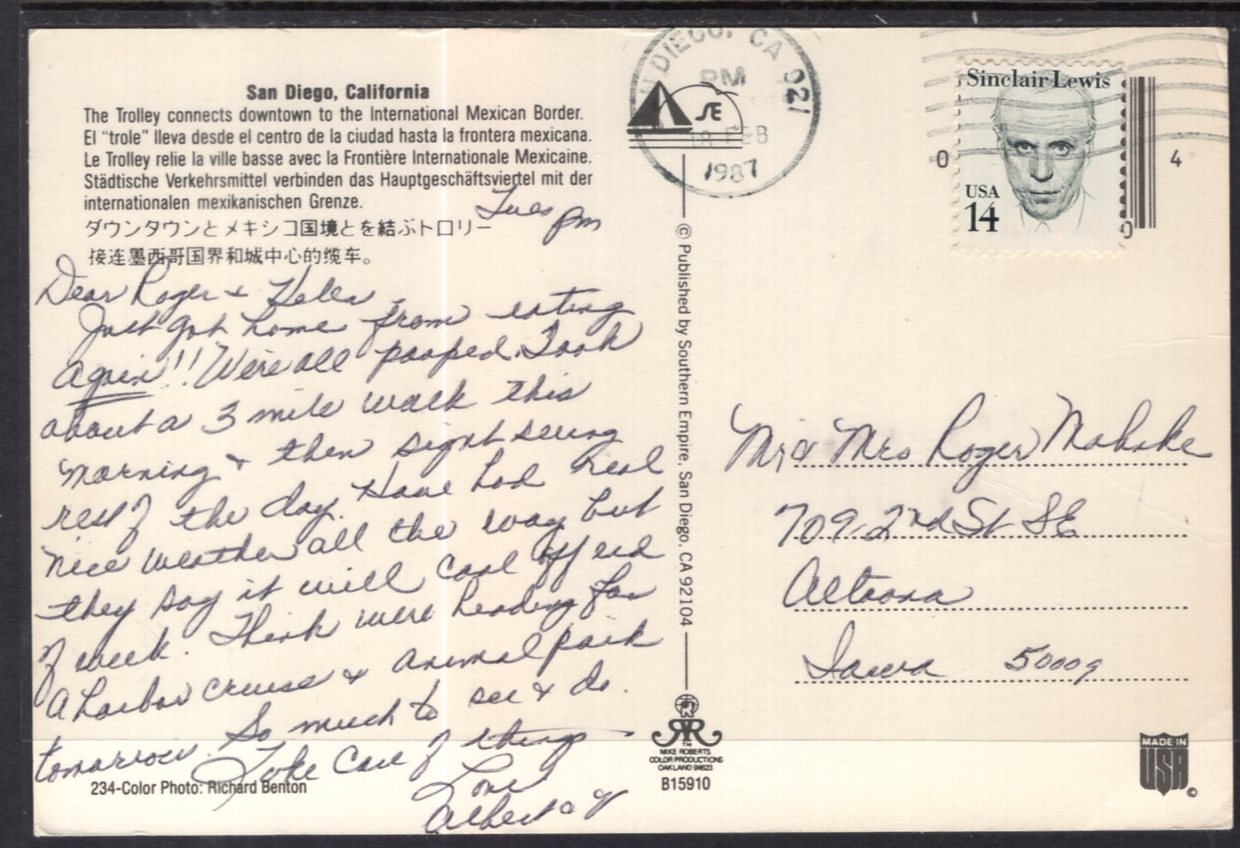 San Diego, California
The Trolley connects downtown to the International Mexican Border.
El "trole" lleva desde el centro de la ciudad hasta la frontera mexicana.
Le Trolley relie la ville basse avec la Frontière Internationale Mexicaine.
Städtische Verkehrsmittel verbinden das Hauptgeschäftsviertel mit der
internationalen mexikanischen Grenze.
ダウンタウンとメキシコ国境とを結ぶトロリー
接连墨西哥国界和城中心的缆车。
Tues pm
Dear Roger + Helen
Just got home from eating
again!! We're all pooped. Took
about a 3 mile walk this
morning + then sight seeing
rest of the day. Have had real
nice weather all the way but
they say it will cool off end
of week. Think were heading for
a harbor cruise + animal park
tomorrow. So much to see + do.
Take care of things
Love
234-Color Photo: Richard Benton
DIEGO, CA 921
PM
SE
18 FEB
1987
Sinclair Lewis
USA
14
0
4
0
© Published by Southern Empire, San Diego, CA 92104
TM
MIKE ROBERTS
COLOR PRODUCTIONS
OAKLAND 94623
B15910
Mr & Mrs Roger Mahnke
709-2nd St SE
Altoona
Iowa 50009
MADE IN
USA
©